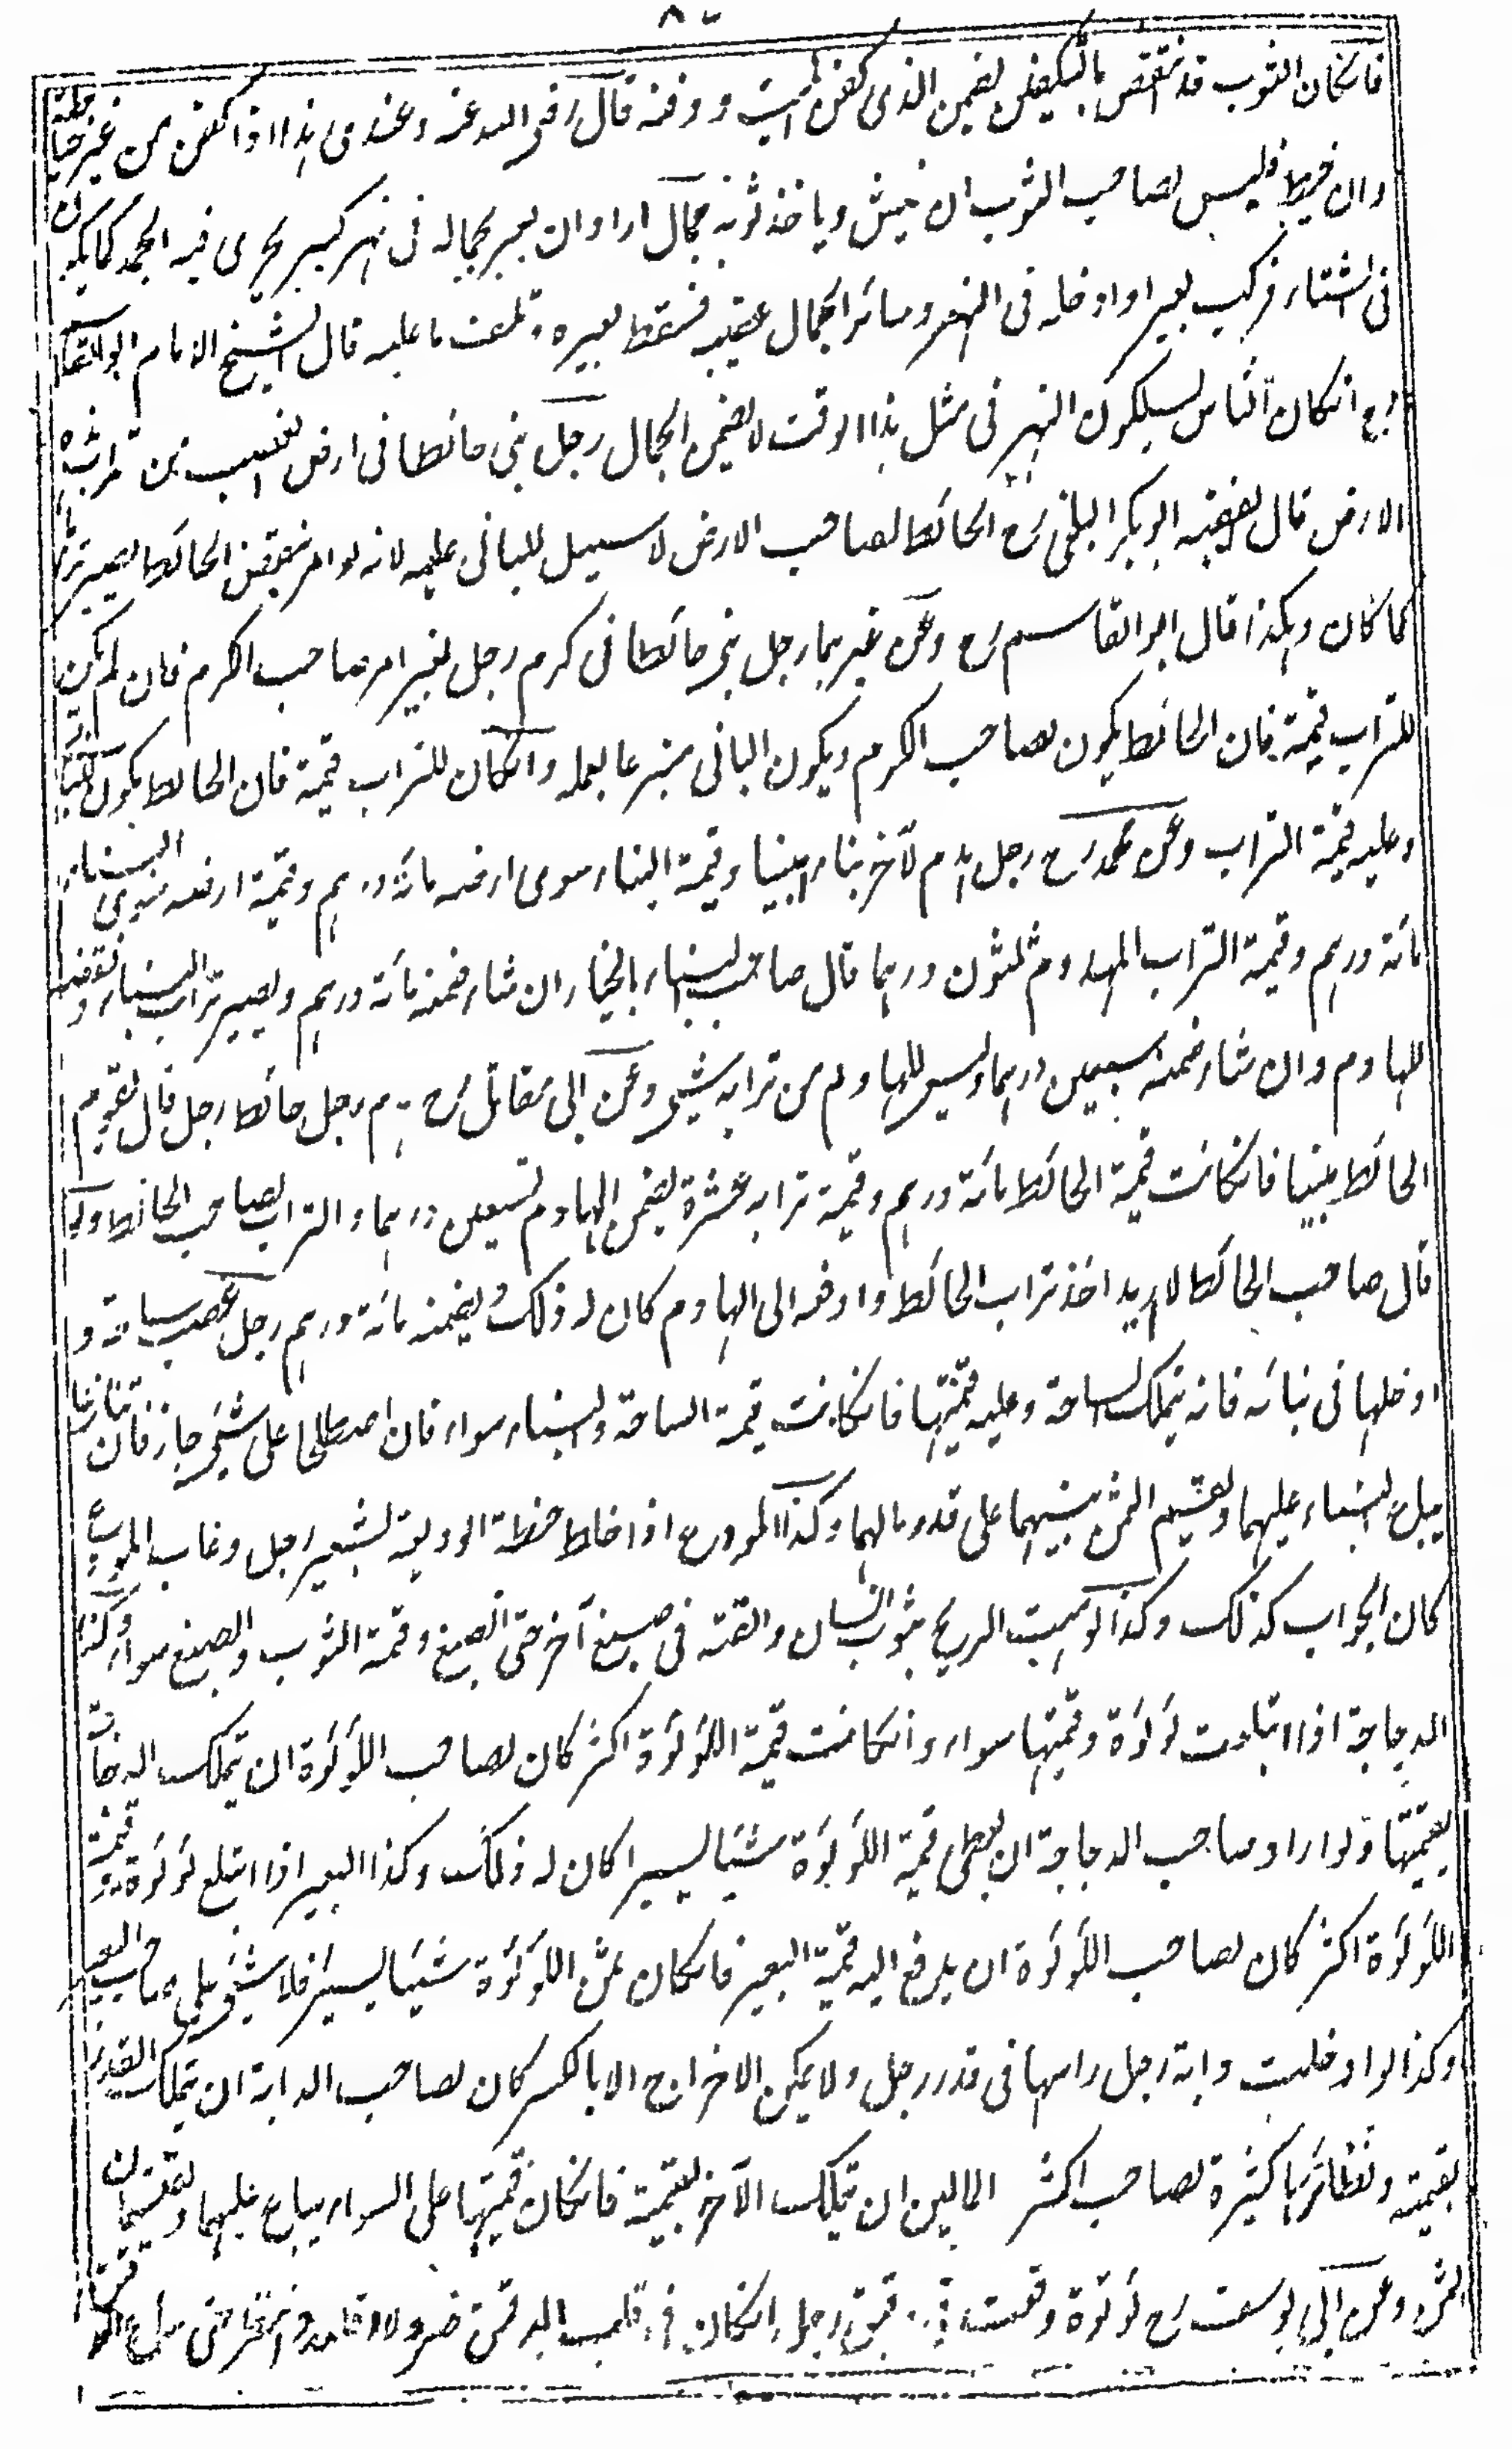 فانكان الثوب قد نتقص بالتكفين يضمن الذى كفن الميت ودفنه قال رضى الله عنه وعندى هذا اذا كفن من غير خياطة
وان خيط فليس لصاحب الثوب ان ينبش وياخذ ثوبه جمال اراد ان يعبر بجماله فى نهر كبير يجرى فيه الجمد كما يكون
فى الشتاء فركب بعيرا وادخله فى النهر وسائر الجمال عقيبه فسقط بعيره وتلفت ما عليه قال الشيخ الامام ابو القاسم
رح انكان الناس يسلكون النهر فى مثل هذا الوقت لا يضمن الجمال رجل بنى حائطا فى ارض الغصب من تراب هذه
الارض قال الفقيه ابو بكر البلخى رح الحائط لصاحب الارض لا سبيل للبانى عليه لانه لو امر بنقض الحائط يصير ترابا
كما كان وهكذا قال ابو القاسم رح وعن غيرهما رجل بنى حائطا فى كرم رجل بغير امر صاحب الكرم فان لم يكن
للتراب قيمة فان الحائط يكون لصاحب الكرم ويكون البانى متبرعا بعمله وانكان للتراب قيمة فان الحائط يكون للبانى
وعليه قيمة التراب وعن محمد رح رجل هدم لآخر بناء مبنيا وقيمة البناء سوى ارضه مائة درهم وقيمة ارضه سوى البناء
مائة درهم وقيمة التراب المهدوم ثلثون درهما قال صاحب البناء بالخيار ان شاء ضمنه مائة درهم ويصير تراب البناء ونقضه
للهادم وان شاء ضمنه سبعين درهما وليس للهادم من ترابه شىء وعن ابى مقاتل رح هدم رجل حائط رجل قال يقوم
الحائط مبنيا فانكانت قيمة الحائط مائة درهم وقيمة ترابه عشرة يضمن الهادم تسعين درهما والتراب لصاحب الحائط ولو
قال صاحب الحائط لا اريد اخذ تراب الحائط وادفعه الى الهادم كان له ذلك ويضمنه مائة درهم رجل غصب ساحة و
ادخلها فى بنائه فانه يتملك الساحة وعليه قيمتها فانكانت قيمة الساحة والبناء سواء فان اصطلحا على شىء جاز فان تنازعا
يباع البناء عليهما ويقسم الثمن بينهما على قدر مالهما وكذا المودع اذا خلط حنطة الوديعة بشعير رجل وغاب المودع
كان الجواب كذلك وكذا لو هبت الريح بثوب انسان والقته فى صبغ آخر حتى انصبغ وقيمة الثوب والصبغ سواء وكذا
الدجاجة اذا ابتلعت لؤلؤة وقيمتها سواء وانكانت قيمة اللؤلؤة اكثر كان لصاحب اللؤلؤة ان يتملك الدجاجة
بقيمتها ولو اراد صاحب الدجاجة ان يعطى قيمة اللؤلؤة شيئا يسيرا كان له ذلك وكذا البعير اذا ابتلع لؤلؤة وقيمة
اللؤلؤة اكثر كان لصاحب اللؤلؤة ان يدفع اليه قيمة البعير فانكان ثمن اللؤلؤة شيئا يسيرا فلا شىء على صاحب البعير
وكذا لو ادخلت دابة رجل راسها فى قدر رجل ولا يمكن الاخراج الا بالكسر كان لصاحب الدابة ان يتملك القدر
بقيمته ونظائرها كثيرة لصاحب اكثر المالين ان يتملك الآخر بقيمته فانكان قيمتها على السواء يباع عليهما ويقتسمان
الثمن وعن ابى يوسف رح لؤلؤة وقعت فى دقيق رجل انكان فى قلب الدقيق ضرر لا اقلبه وانتظر حتى يباع